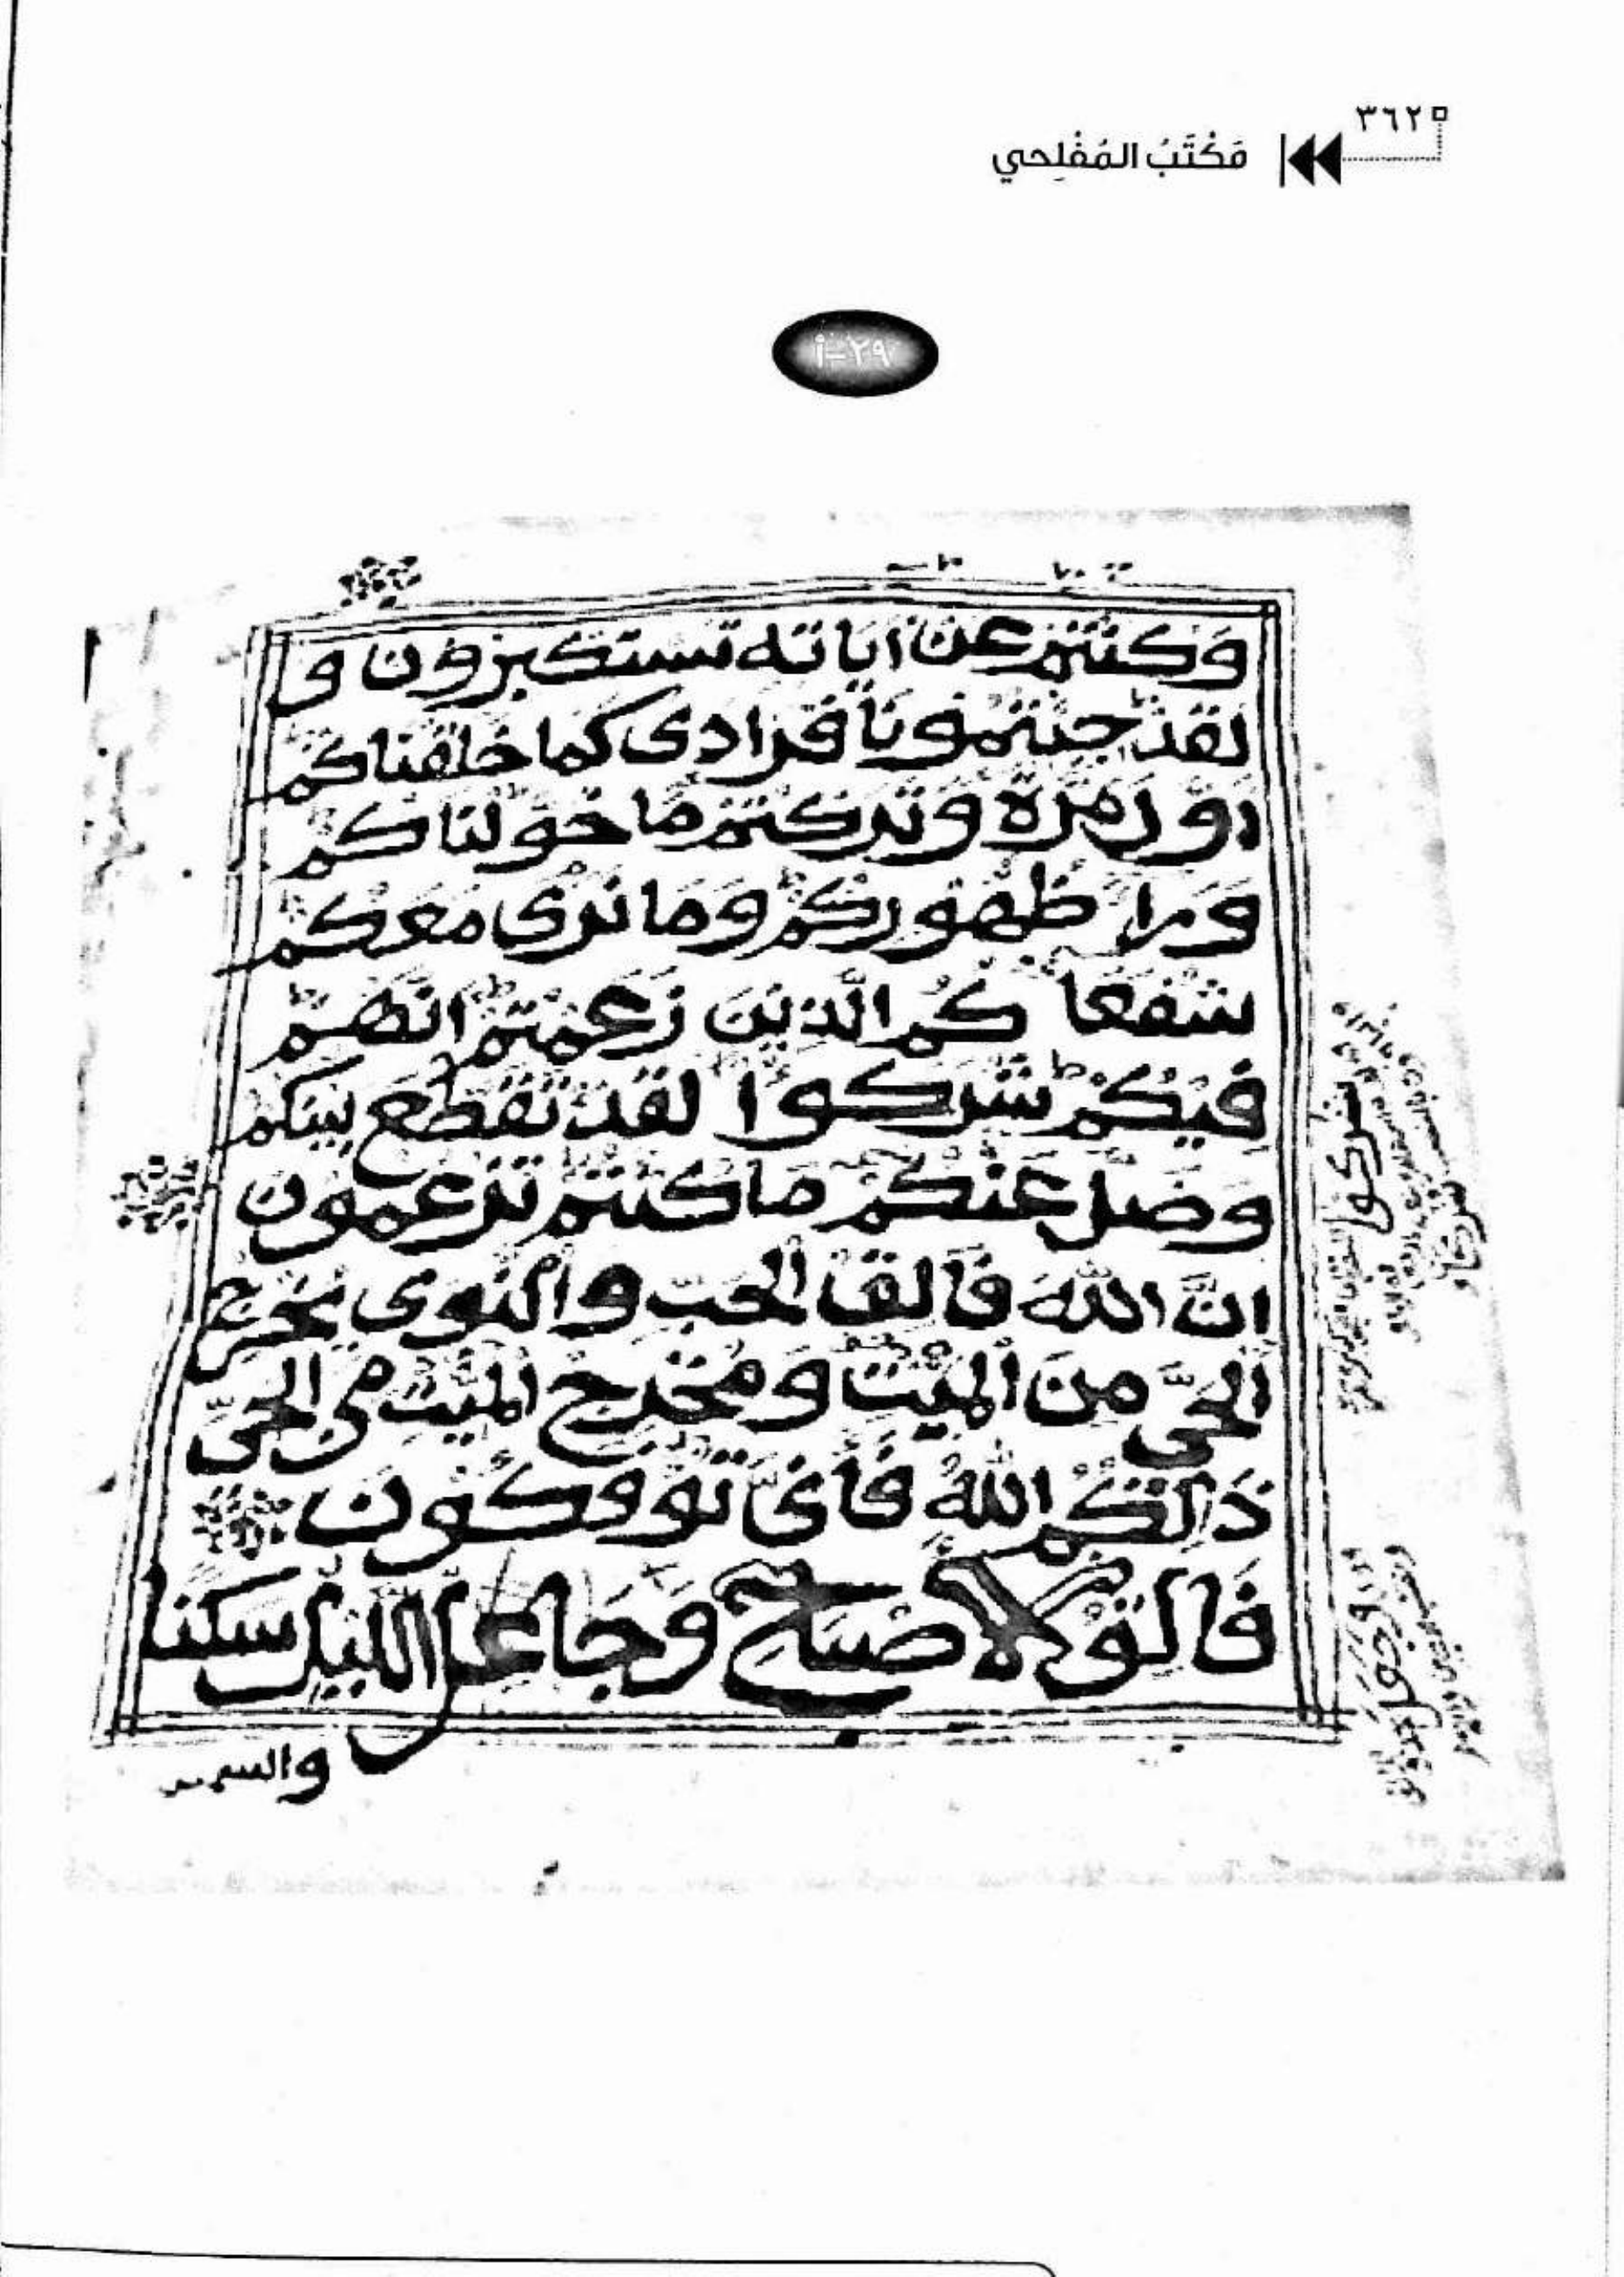 ٣٦٢
مَكْتَبُ المُفْلِحي
٢٩-أ
وَكنتم عن اياته تستكبرون و
لقد جئتمونا فرادى كما خلقناكم
اول مرة وتركتم ما خولناكم
ورا ظهوركم وما نرى معكم
شفعا كم الذين زعمتم انهم
فيكم شركوا لقد تقطع بينكم
وضل عنكم ما كنتم تزعمون
ان الله فالق الحب والنوى يخرج
الحي من الميت ومخرج الميت من الحي
ذالكم الله فأنى توفكون
فالق الاصباح وجاعل الليل سكنا
والشمس
شركوا
وجعل